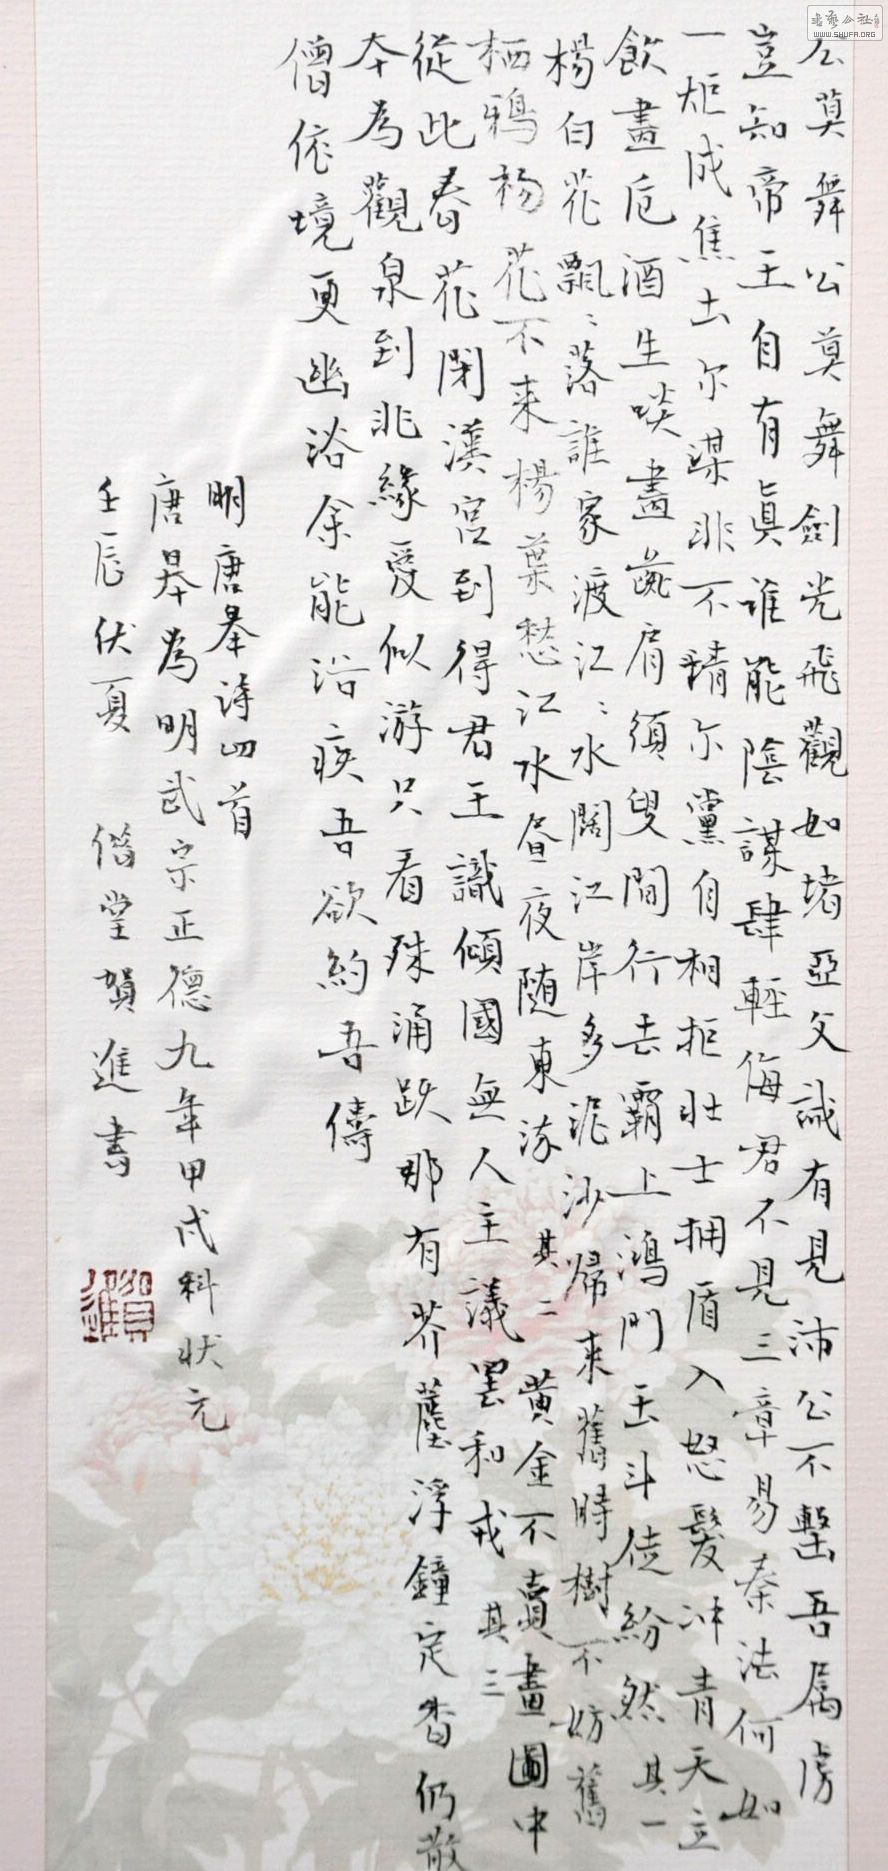 公莫舞公莫舞劍光飛觀如堵亞父誠有見沛公不擊吾屬虜
豈知帝王自有真谁能陰謀肆輕侮君不見三章易秦法何如
一炬成焦土尔謀非不精尔黨自相拒壯士拥盾入怒髮冲青天立
飲盡卮酒生啖盡彘肩須臾間行去霸上鴻門玉斗徒紛然 其一
楊白花飄飄落誰家渡江江水闊江岸多泥沙歸來舊時樹不妨舊
栖鴉杨花不来楊葉愁江水昼夜随東流 其二 黄金不賣畫圖中
從此春花閉漢宫到得君王識傾國無人主議罢和戎 其三
本為觀泉到非緣愛似游只看殊涌跌那有芥塵浮鐘定香仍散
僧依境更幽浴余能浴疾吾欲約吾儔
明唐皋诗四首
唐皋為明武宗正德九年甲戌科状元
壬辰伏夏 偕堂賀進書
賀進
書藝公社
WWW.SHUFA.ORG